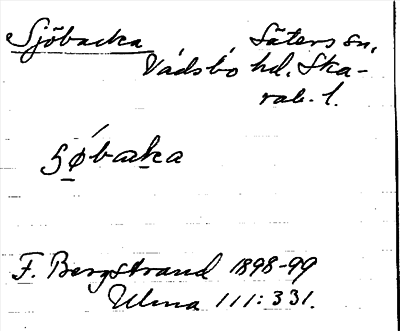 Sjöbacka Säters sn,
Vadsbo hd. Ska-
rab. l.
Sǿbacka
F. Bergstrand 1898-99
Ulma 111:331.